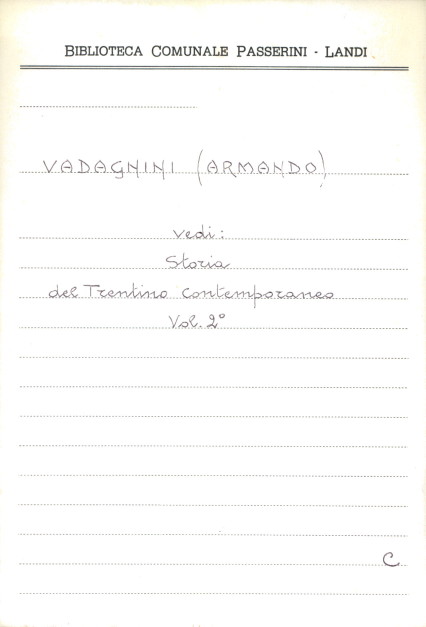 BIBLIOTECA COMUNALE PASSERINI - LANDI
VADAGNINI (ARMANDO)
vedi:
Storia
del Trentino Contemporaneo
Vol. 2°
C